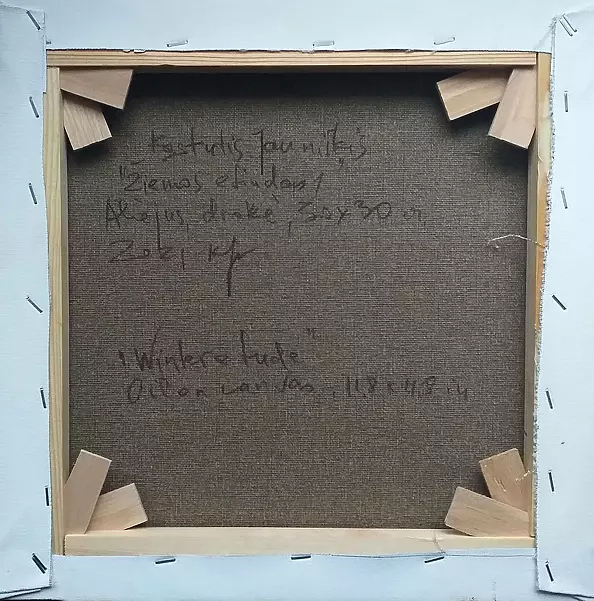 Kęstutis Jauniškis
"Žiemos etiudas"
Aliejus, drobė, 30x30 cm,
"Winter etude"
Oil on canvas, 11,8 x 11,8 in